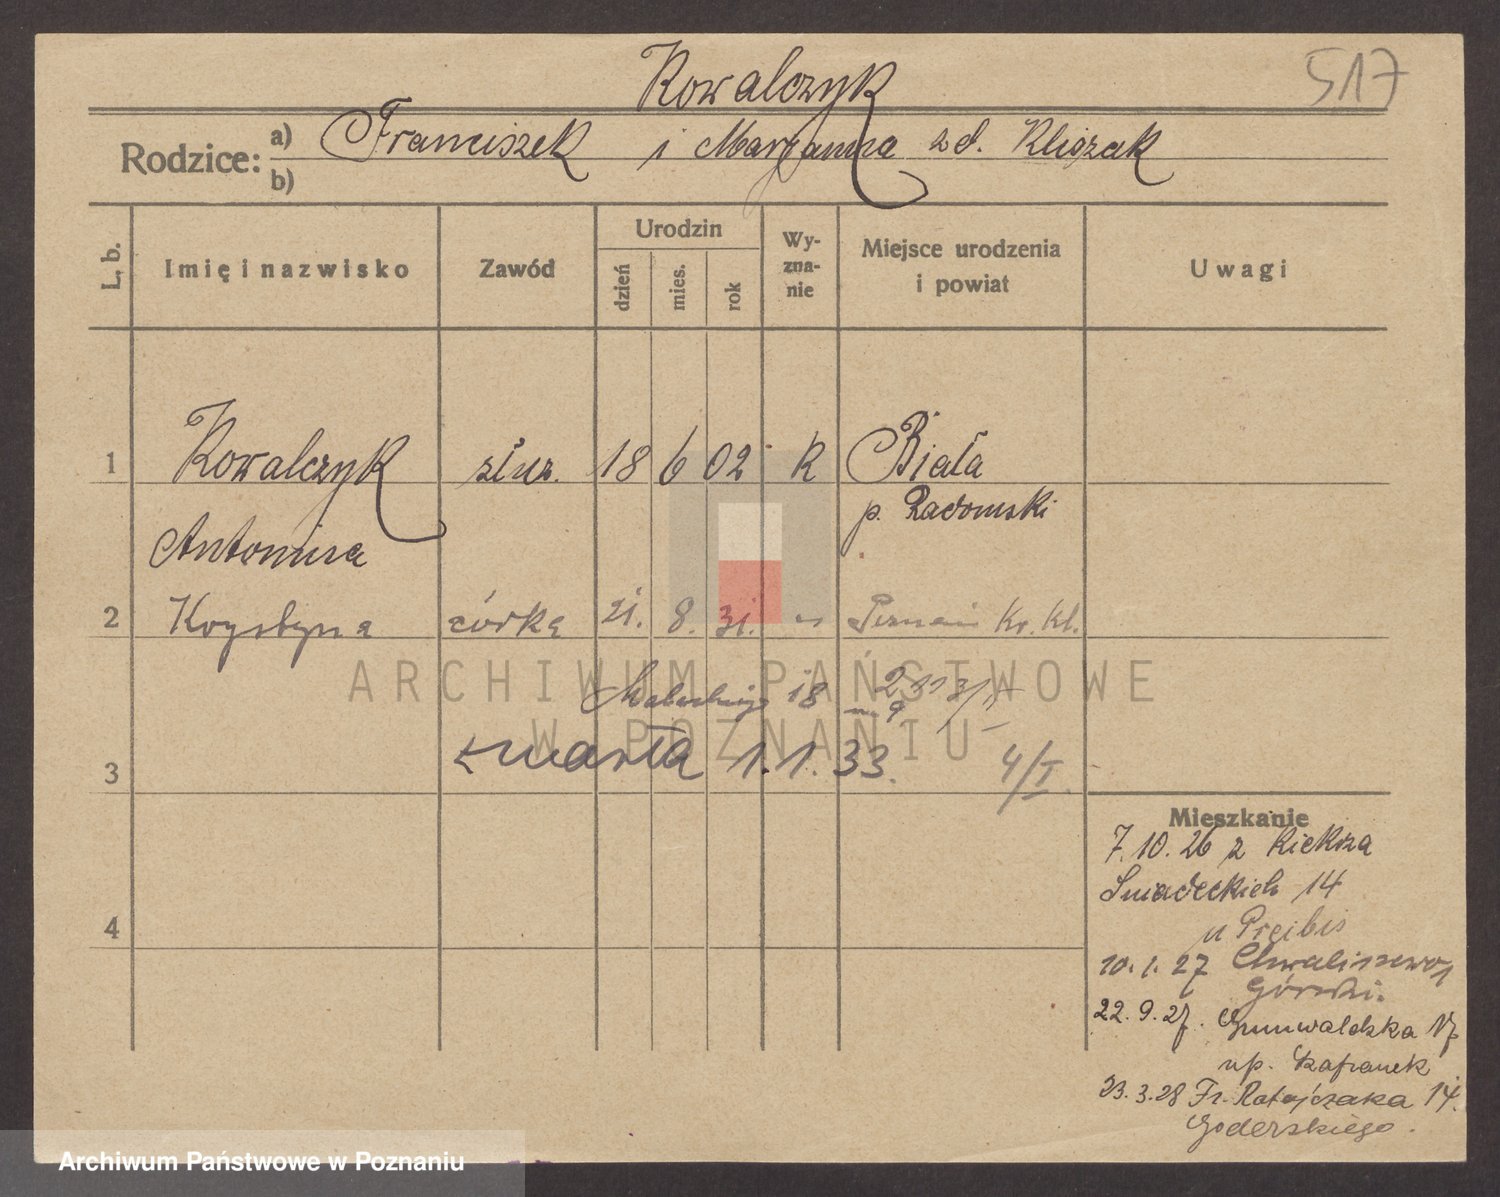 Kowalczyk
517
Rodzice: a) Franciszek i Marjanna zd. Kliszak
b)
L. b.
Imię i nazwisko
Zawód
Urodzin
dzień
mies.
rok
Wy-
zna-
nie
Miejsce urodzenia
i powiat
Uwagi
1 Kowalczyk służ. 18 6 02 R Biała
p. Radomski
Antonina
2 Krystyna córka 21. 8. 31. Poznań Kr. Kl.
ARCHIWUM PAŃSTWOWE
18 m. 9
W POZNANIU
3 zmarła 1.1.33. 4/I.
Mieszkanie
7.10.26 z Kiekrza
Śniadeckich 14
4
10.1.27 Chwaliszewo
Górski.
22.9.27. Grunwaldzka 17
up. Szafranek
23.3.28 Fr. Ratajczaka 14.
Goderskiego.
Archiwum Państwowe w Poznaniu